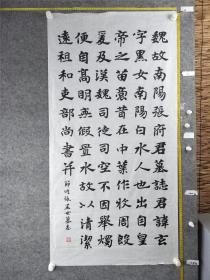 魏故南陽張府君墓誌君諱玄
字黑女南陽白水人也出自皇
帝之苗裔昔在中葉作牧周殷
爰及漢魏司徒司空不因舉燭
便自高明無假置水故以清潔
遠祖和吏部尚書并